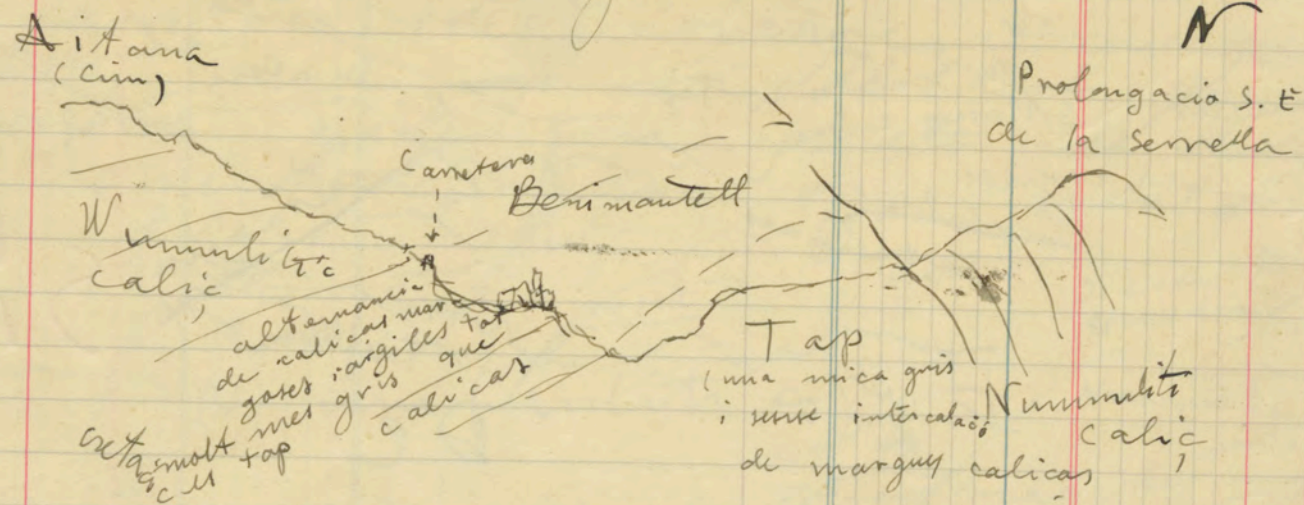 N
Aitana
(Cim)
Prolongacio S. E
de la serrella
Carretera
Benimantell
Nummulitic
calić
alternancia
de calicas mar
goses i argiles tot
molt mes gris que
el tap
calicas
Tap
(una mica gris
i sense intercalació
de margues calicas
Nummuliti
calić